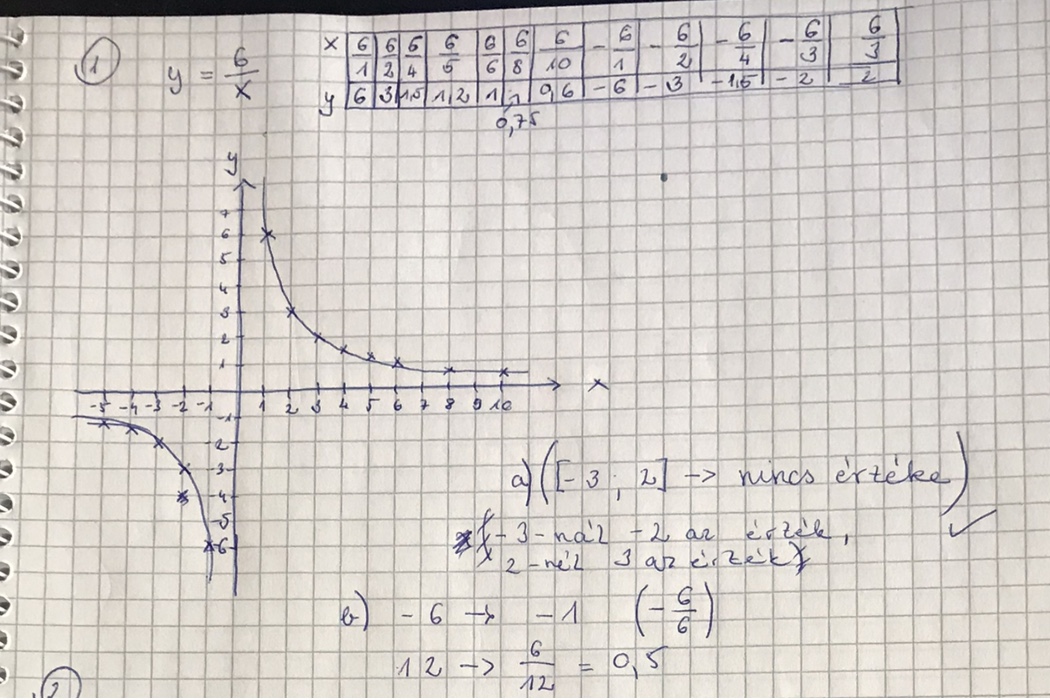 1
y = 6/x
x 6/1 6/2 6/4 6/5 6/6 6/8 6/10 -6/1 -6/2 -6/4 -6/3 6/3
y 6 3 1,5 1,2 1 0,6 -6 -3 -1,5 -2 2
0,75
y
7
6
5
4
3
2
1
-5 -4 -3 -2 -1 1 2 3 4 5 6 7 8 9 10 x
-1
-2
-3
-4
-5
-6
a) ([-3 ; 2] -> nincs értéke)
-3-nál -2 az érték,
2-nél 3 az érték
b) -6 -> -1 (-6/6)
12 -> 6/12 = 0,5
2